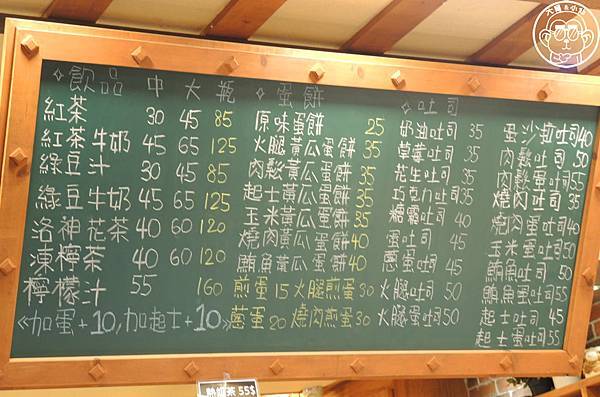 ✧飲品 中 大 瓶
紅茶 30 45 85
紅茶牛奶 45 65 125
綠豆汁 30 45 85
綠豆牛奶 45 65 125
洛神花茶 40 60 120
凍檸茶 40 60 120
檸檬汁 55 160
《加蛋+10,加起士+10》
✧蛋餅
原味蛋餅 25
火腿黃瓜蛋餅 35
肉鬆黃瓜蛋餅 35
起士黃瓜蛋餅 35
玉米黃瓜蛋餅 35
燒肉黃瓜蛋餅 40
鮪魚黃瓜蛋餅 40
煎蛋 15 火腿煎蛋 30
蔥蛋 20 燒肉煎蛋 30
✧吐司
奶油吐司 35
草莓吐司 35
花生吐司 35
巧克力吐司 35
糖霜吐司 40
蛋吐司 45
蔥蛋吐司 45
火腿吐司 50
火腿蛋吐司 50
蛋沙拉吐司 40
肉鬆吐司 50
肉鬆蛋吐司 55
燒肉吐司 35
燒肉蛋吐司 40
玉米蛋吐司 50
鮪魚吐司 50
鮪魚蛋吐司 55
起士吐司 45
起士蛋吐司 55
熱奶茶 55$